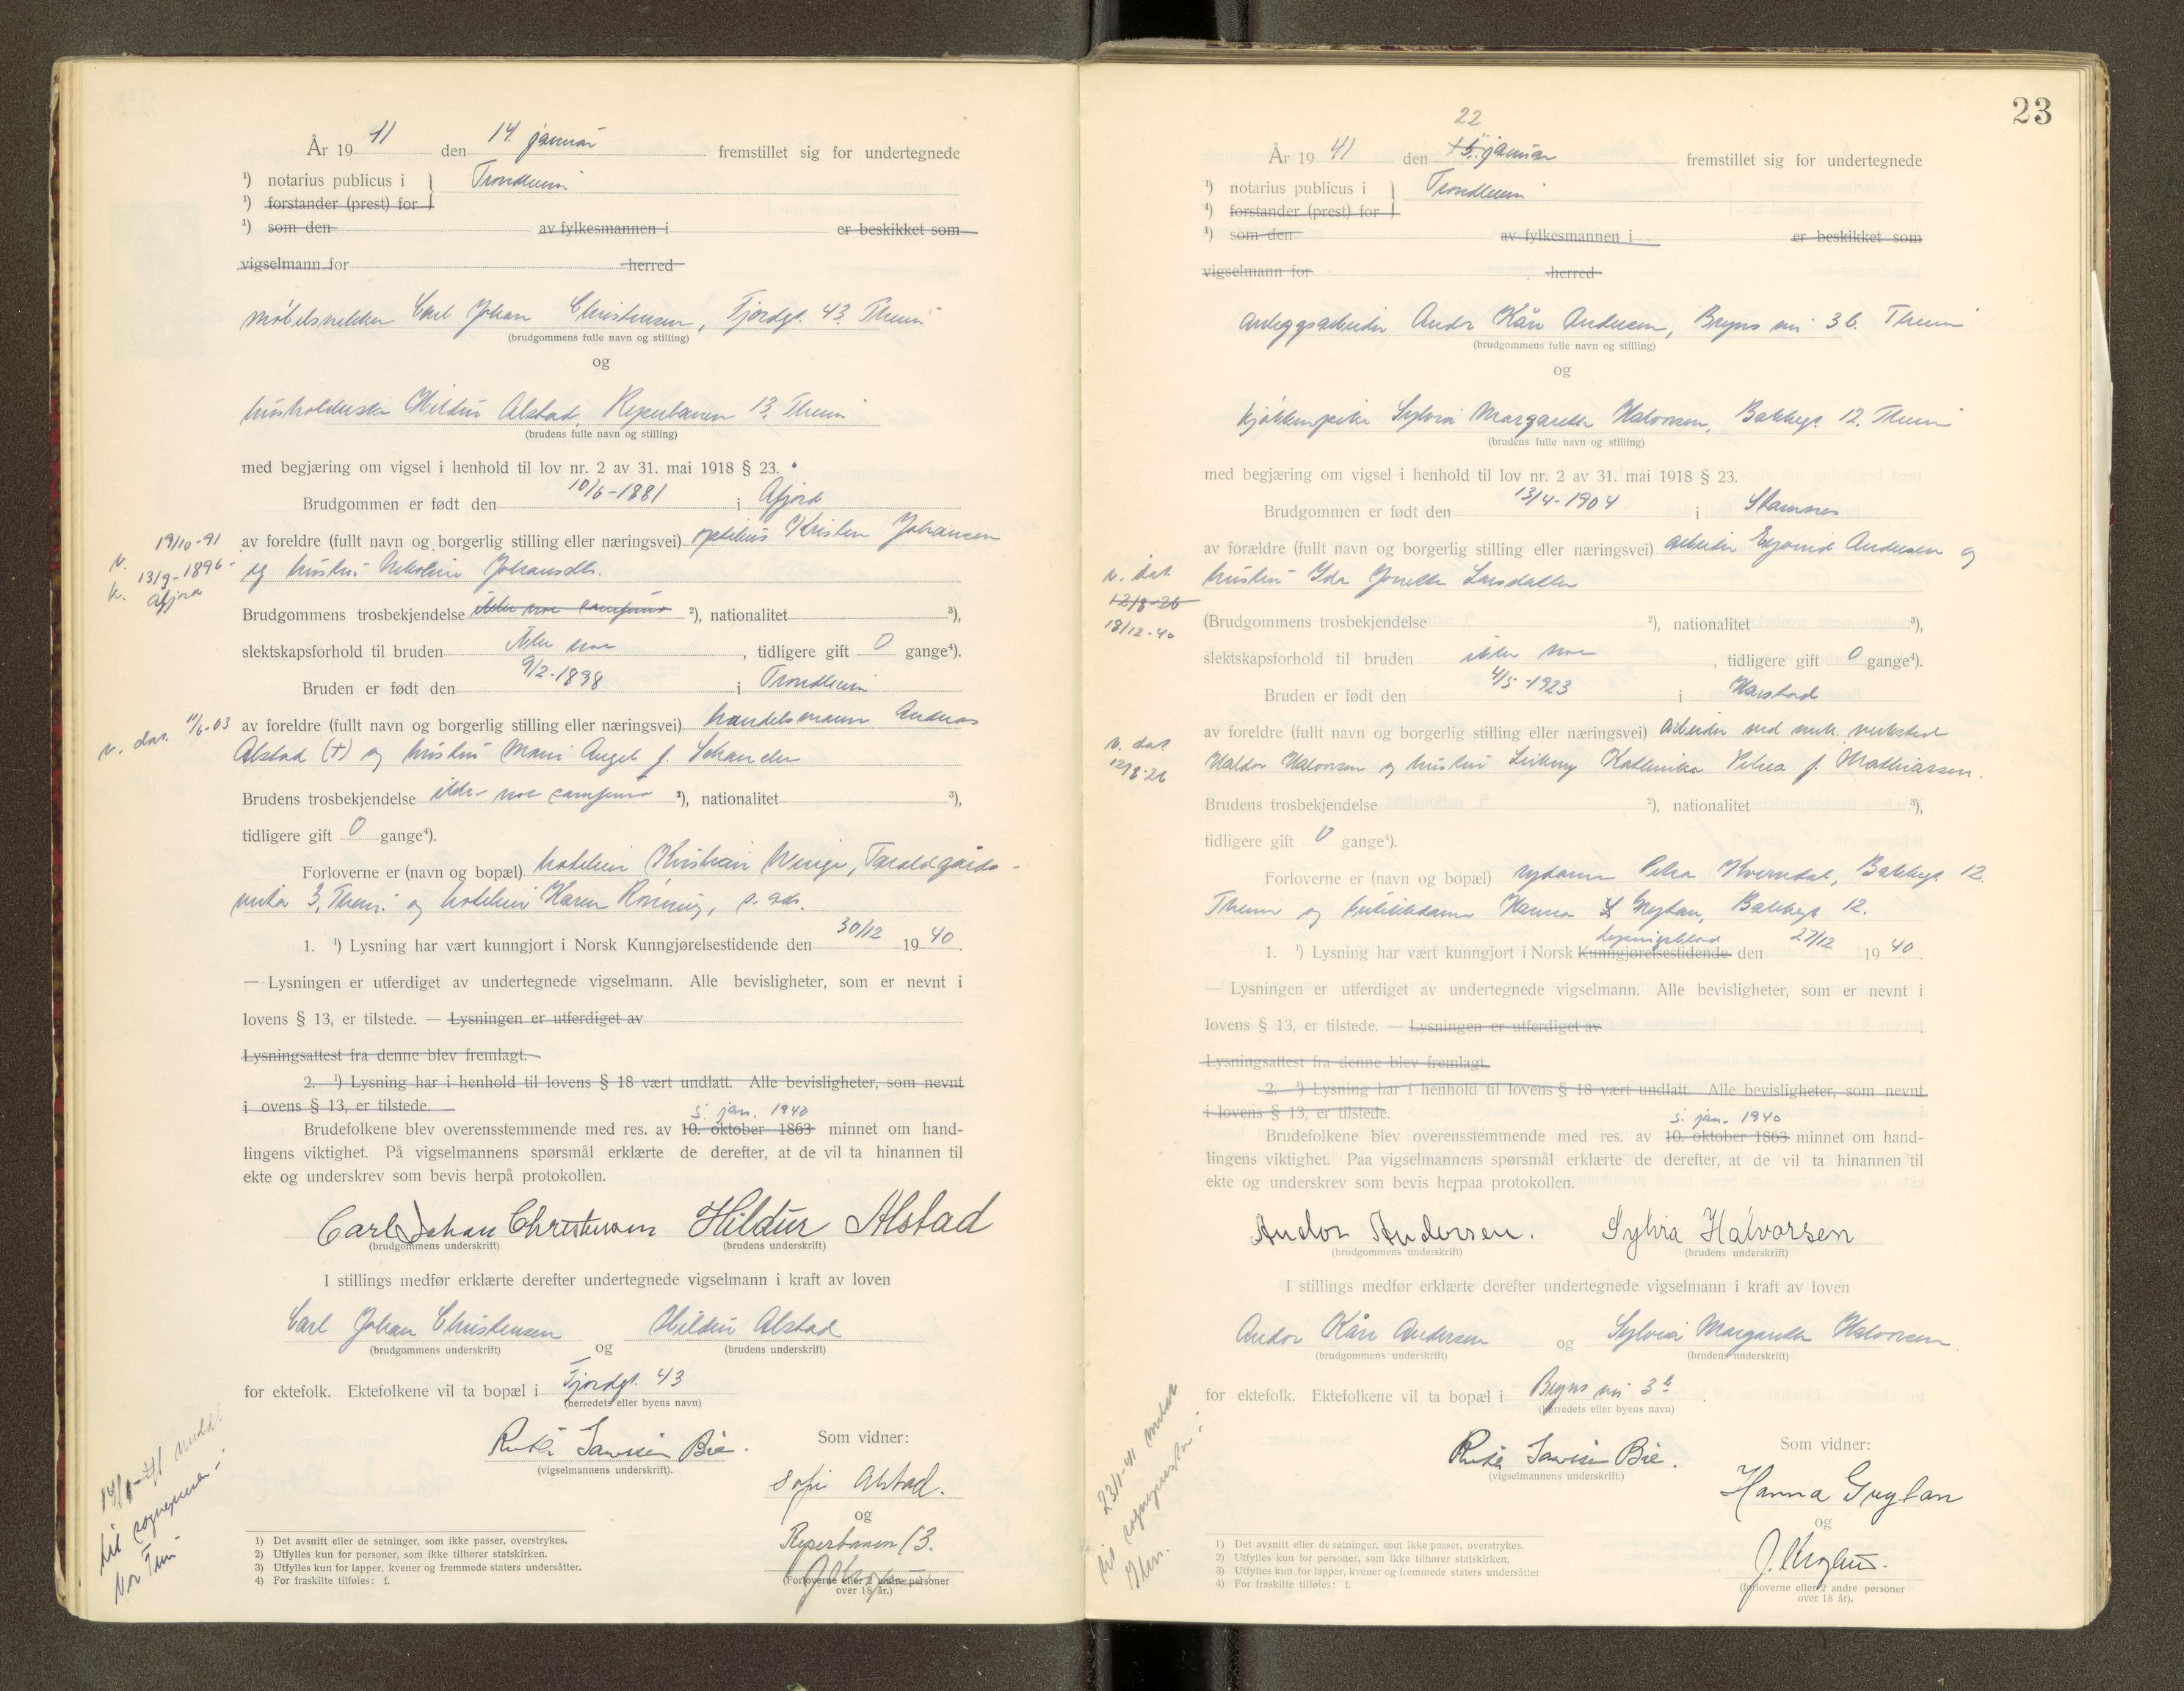 År 19 41 den 14. januar fremstillet sig for undertegnede
¹) notarius publicus i } Trondheim
¹) forstander (prest) for
¹) som den av fylkesmannen i er beskikket som
vigselmann for herred
møbelsnekker Carl Johan Christensen, Fjordgt. 43, Theim
(brudgommens fulle navn og stilling)
og
husholderske Hildur Alstad, Reperbanen 13, Theim
(brudens fulle navn og stilling)
med begjæring om vigsel i henhold til lov nr. 2 av 31. mai 1918 § 23.
Brudgommen er født den 10/6-1881 i Afjord
av foreldre (fullt navn og borgerlig stilling eller næringsvei) Kristen Johansen
og hustru Johansdtr.
v. 19/10-91
k. 13/9-1896-
Afjord
Brudgommens trosbekjendelse ²), nationalitet ³),
slektskapsforhold til bruden Ikke noe, tidligere gift 0 gange⁴).
Bruden er født den 9/2-1898 i Trondheim
av foreldre (fullt navn og borgerlig stilling eller næringsvei) handelsmann Andreas
Alstad (+) og hustru Marie Angel f. Schancke
v. dat. 11/6-03
Brudens trosbekjendelse ikke noe samfund ²), nationalitet ³),
tidligere gift 0 gange⁴).
Forloverne er (navn og bopæl) Kristian Taraldgårds-
veita 3, Theim og Karen Rønning, s. ads.
1. ¹) Lysning har vært kunngjort i Norsk Kunngjørelsestidende den 30/12 19 40.
— Lysningen er utferdiget av undertegnede vigselmann. Alle bevisligheter, som er nevnt i
lovens § 13, er tilstede. — Lysningen er utferdiget av
Lysningsattest fra denne blev fremlagt.
2. ¹) Lysning har i henhold til lovens § 18 vært undlatt. Alle bevisligheter, som nevnt
i ovens § 13, er tilstede.
5. jan. 1940
Brudefolkene blev overensstemmende med res. av 10. oktober 1863 minnet om hand-
lingens viktighet. På vigselmannens spørsmål erklærte de derefter, at de vil ta hinannen til
ekte og underskrev som bevis herpå protokollen.
Carl Johan Christensen Hildur Alstad
(brudgommens underskrift) (brudens underskrift)
I stillings medfør erklærte derefter undertegnede vigselmann i kraft av loven
Carl Johan Christensen og Hildur Alstad
(brudgommens underskrift) (brudens underskrift)
for ektefolk. Ektefolkene vil ta bopæl i Fjordgt. 43
(herredets eller byens navn)
Bie.
(vigselmannens underskrift).
Som vidner:
Sofie Alstad.
og
Reperbanen 13.
(Forloverne eller 2 andre personer
over 18 år.)
14/1-41
til sognepresten i
Vor
1) Det avsnitt eller de setninger, som ikke passer, overstrykes.
2) Utfylles kun for personer, som ikke tilhører statskirken.
3) Utfylles kun for lapper, kvener og fremmede staters undersåtter.
4) For fraskilte tilføies: f.
23
22
År 19 41 den 15. januar fremstillet sig for undertegnede
¹) notarius publicus i } Trondheim
¹) forstander (prest) for
¹) som den av fylkesmannen i er beskikket som
vigselmann for herred
anleggsarbeider Andor Kåre Andersen, Bryns vei 3 b. Theim
(brudgommens fulle navn og stilling)
og
kjøkkenpike Sylvia Margarethe Halvorsen, Bakkegt. 12. Theim
(brudens fulle navn og stilling)
med begjæring om vigsel i henhold til lov nr. 2 av 31. mai 1918 § 23.
Brudgommen er født den 13/4-1904 i Stamnes
av forældre (fullt navn og borgerlig stilling eller næringsvei) arbeider Andersen og
hustru Ida Larsdatter
v. dat.
12/8-26
18/12-40
(Brudgommens trosbekjendelse ²), nationalitet ³),
slektskapsforhold til bruden ikke noe, tidligere gift 0 gange⁴).
Bruden er født den 4/5-1923 i Harstad
av foreldre (fullt navn og borgerlig stilling eller næringsvei) arbeider ved mek. verksted
Haldor Halvorsen og hustru Kathinka Petrea f. Mathiassen.
v. dat.
12/8-26
Brudens trosbekjendelse ²), nationalitet ³),
tidligere gift 0 gange⁴).
Forloverne er (navn og bopæl) sydame Petra Kverndal, Bakkegt. 12.
Theim og Hanna Grytan, Bakkegt 12.
Lysningsblad
1. ¹) Lysning har vært kunngjort i Norsk Kunngjørelsestidende den 27/12 19 40.
— Lysningen er utferdiget av undertegnede vigselmann. Alle bevisligheter, som er nevnt i
lovens § 13, er tilstede. — Lysningen er utferdiget av
Lysningsattest fra denne blev fremlagt.
2. ¹) Lysning har i henhold til lovens § 18 vært undlatt. Alle bevisligheter, som nevnt
i lovens § 13, er tilstede.
5. jan. 1940
Brudefolkene blev overensstemmende med res. av 10. oktober 1863 minnet om hand-
lingens viktighet. Paa vigselmannens spørsmål erklærte de derefter, at de vil ta hinannen til
ekte og underskrev som bevis herpaa protokollen.
Andor Andersen. Sylvia Halvorsen
(brudgommens underskrift) (brudens underskrift)
I stillings medfør erklærte derefter undertegnede vigselmann i kraft av loven
Andor Kåre Andersen og Sylvia Margarethe Halvorsen.
(brudgommens underskrift) (brudens underskrift)
for ektefolk. Ektefolkene vil ta bopæl i Bryns vei 3 b.
(herredets eller byens navn)
Bie.
(vigselmannens underskrift).
Som vidner:
Hanna Grytan
og
(forloverne eller 2 andre personer
over 18 år).
23/1-41 meldt
til sognepresten i
Ilen.
1) Det avsnitt eller de setninger, som ikke passer, overstrykes.
2) Utfylles kun for personer, som ikke tilhører statskirken.
3) Utfylles kun for lapper, kvener og fremmede staters undersåtter
4) For fraskilte tilføies: f.